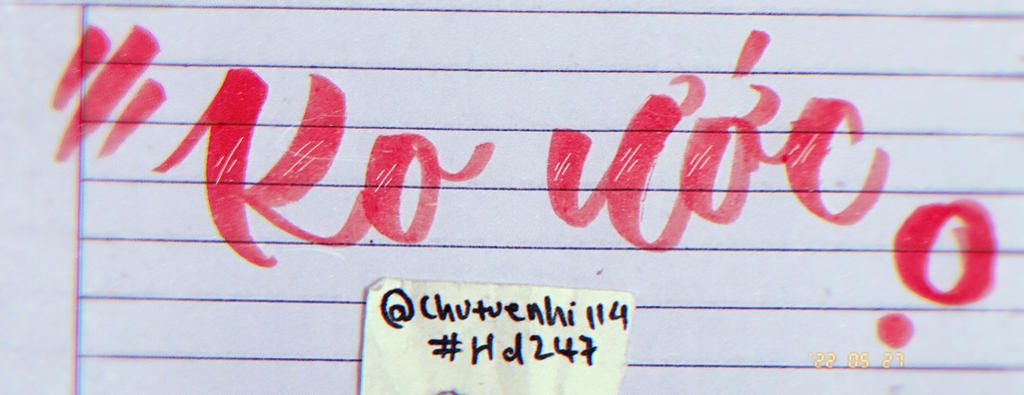 Ko ước
@chutuenhi114
#Hd247
'22 05 27